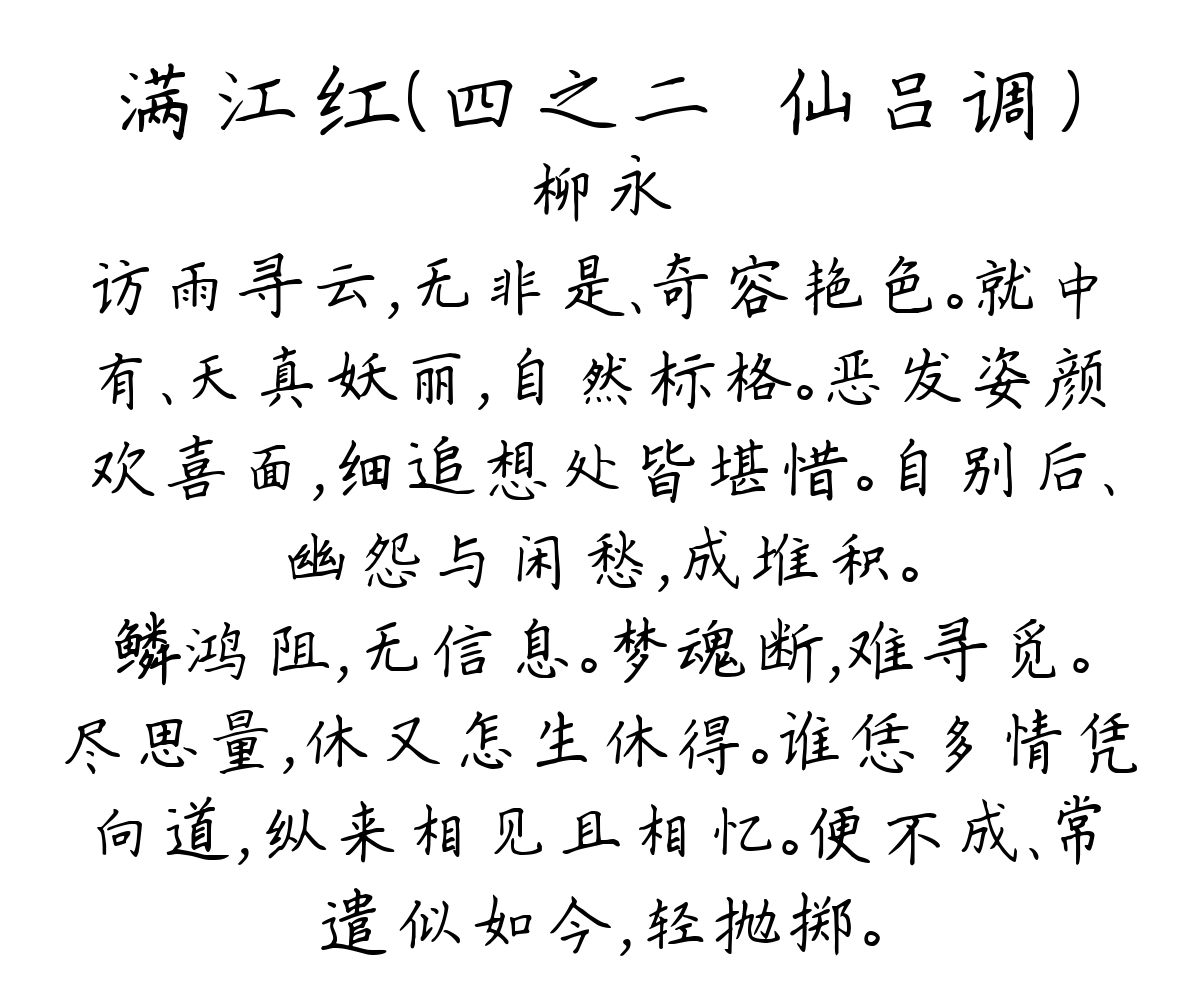 满江红(四之二 仙吕调)
柳永
访雨寻云,无非是、奇容艳色。就中
有、天真妖丽,自然标格。恶发姿颜
欢喜面,细追想处皆堪惜。自别后、
幽怨与闲愁,成堆积。
鳞鸿阻,无信息。梦魂断,难寻觅。
尽思量,休又怎生休得。谁恁多情凭
向道,纵来相见且相忆。便不成、常
遣似如今,轻抛掷。